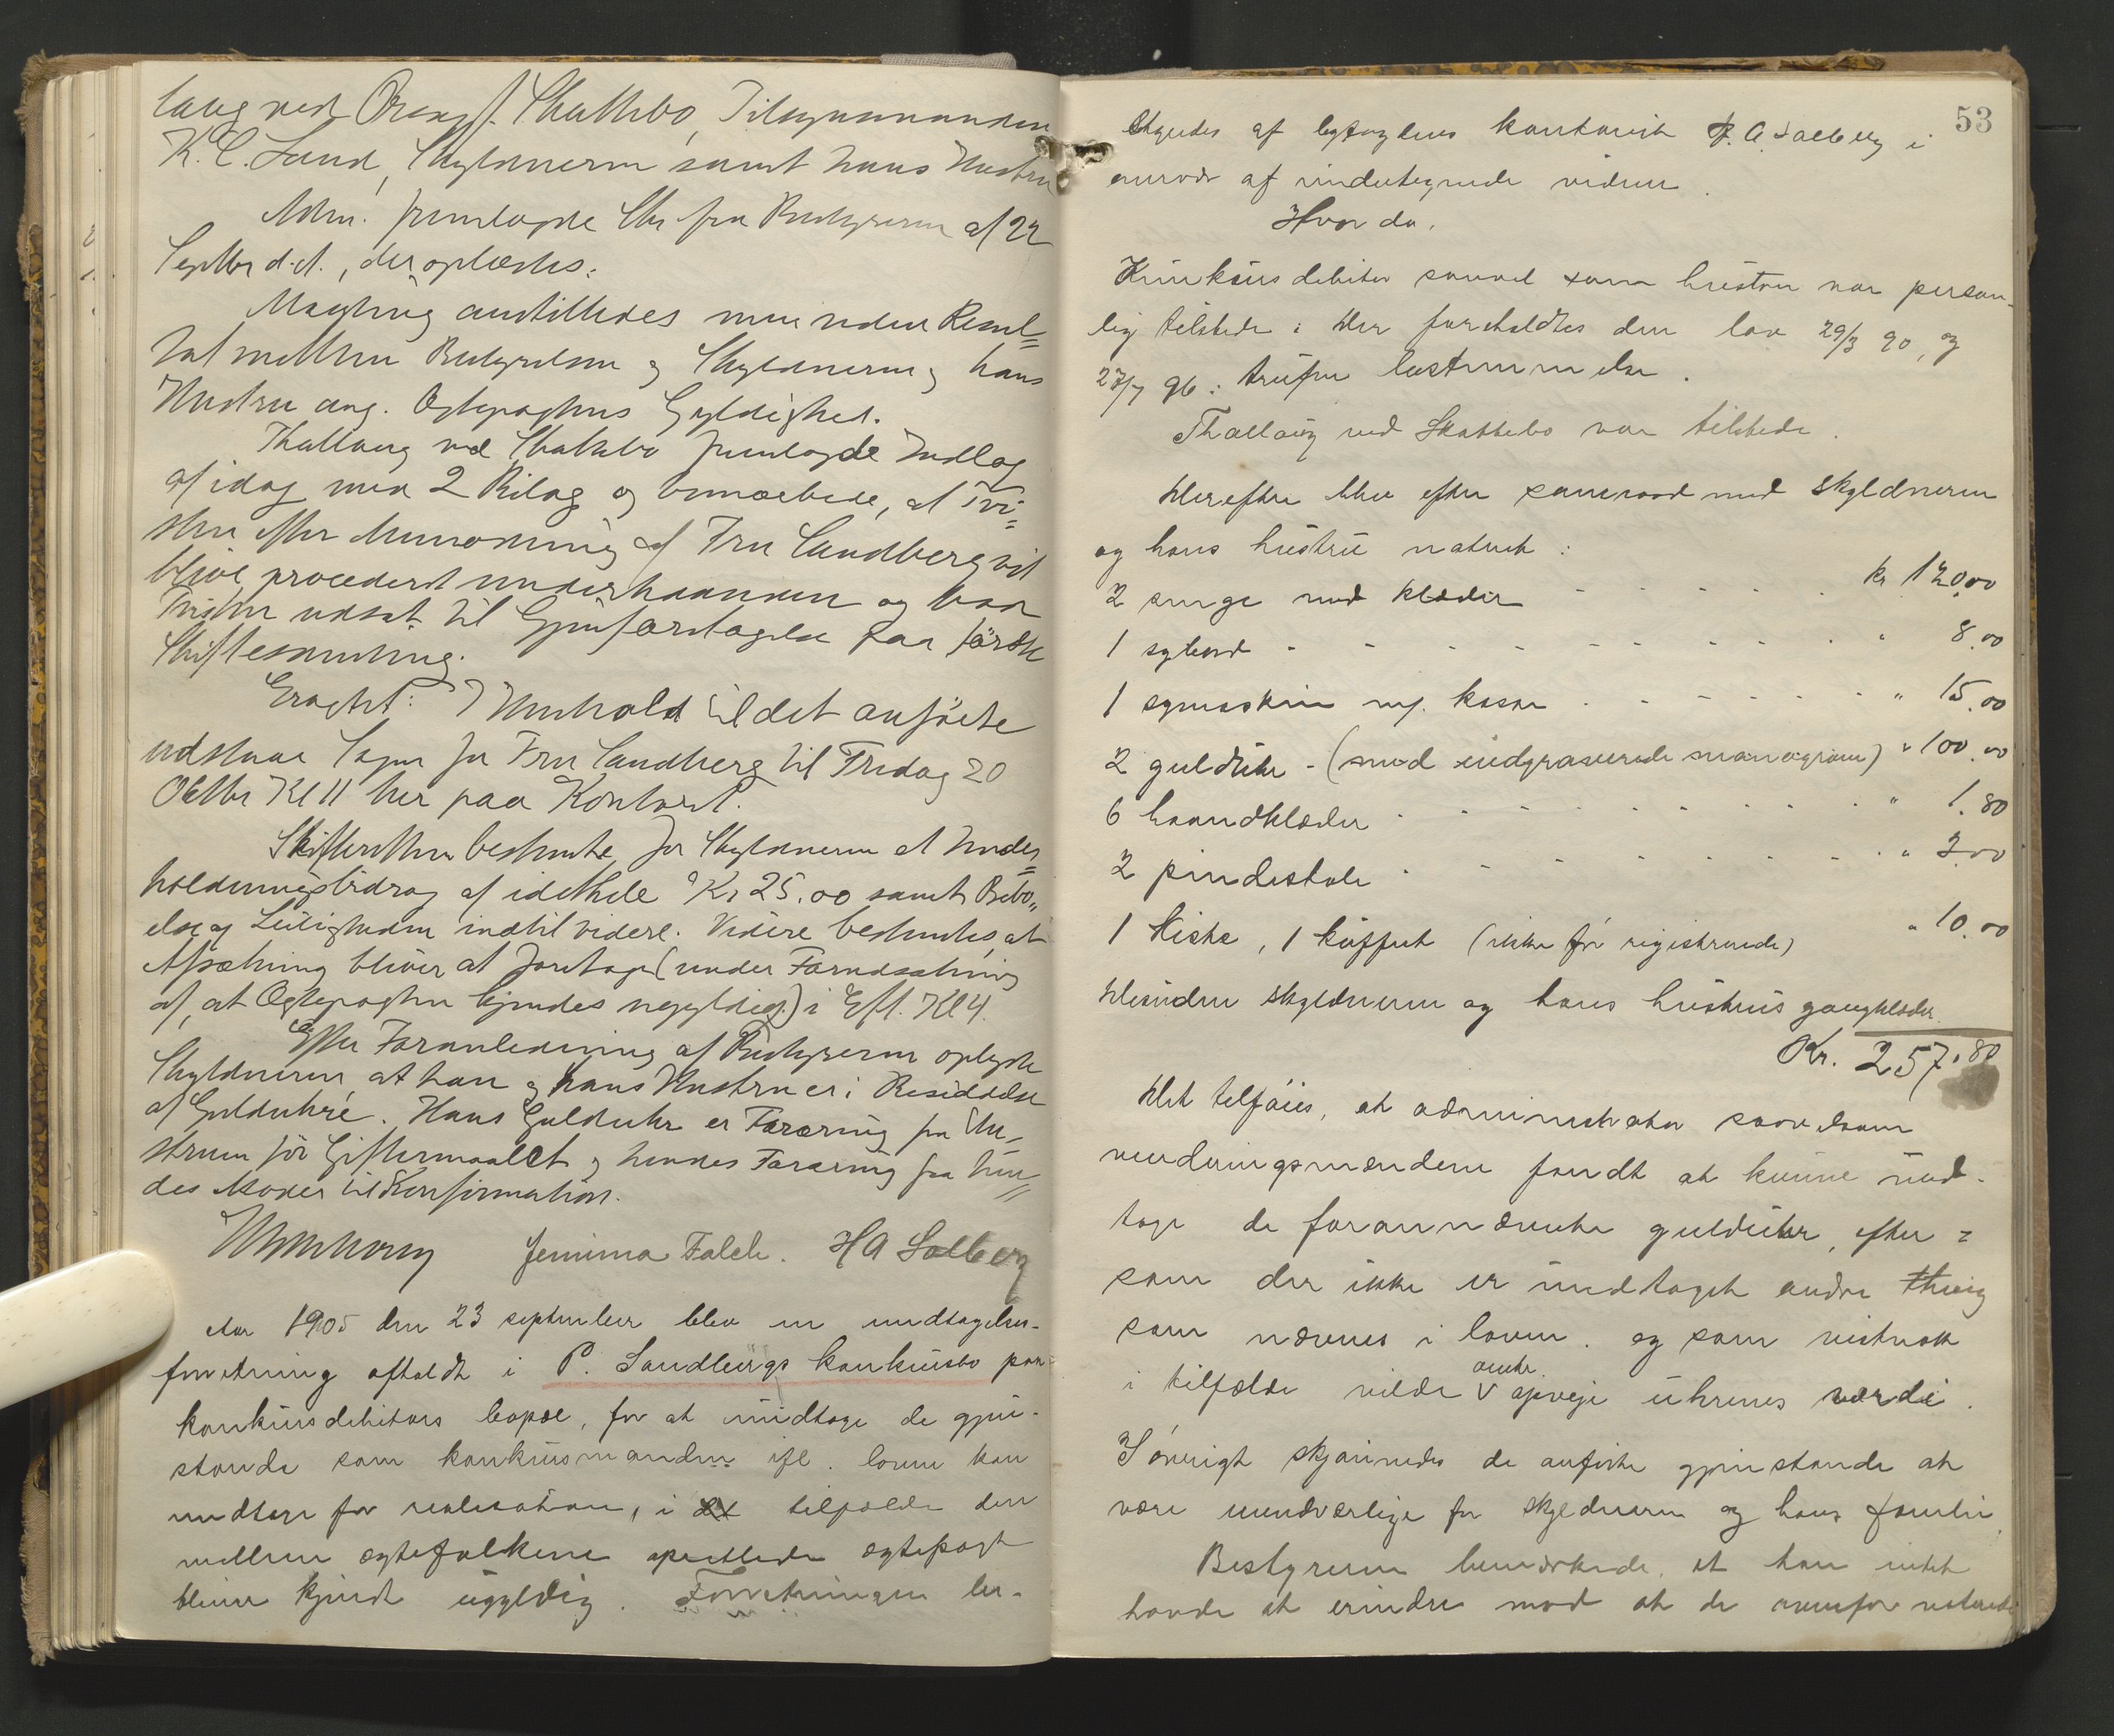 laug ved Overrsf. Skattebo, Tilsynsmanden
K. C. Lund, Skyldneren samt hans Hustru
Adm. fremlagde Skr fra Bestyreren af 22
Septbr d. A., der oplæstes.
Mægling anstilledes men uden Resul=
tat mellem Bestyrelsen og Skyldneren og hans
Hustru ang. Ægtepagtens Gyldighed.
Thallaug ved Skattebo fremlagde Indlæg
af idag med 2 Bilag og bemærkede, at Tvi=
sten efter Anmodning af Fru Sandberg vil
blive procederet underhaanden og bad
Tvisten udsat til Gjenforetagelse paa første
Skiftesamling.
Eragtet: I Henhold til det anførte
udstaar Sagen for Fru Sandberg til Fredag 20
Oktbr Kl 11 her paa Kontoret.
Skifteretten bestemte for Skyldneren et Under=
holdningsbidrag af idethele Kr 25.00 samt Bebo„
else af Leiligheden indtil videre. Videre bestemtes, at
Afsætning bliver at foretage (under Forudsætning
af, at Ægtepagten kjendes ugyldig) i Eft. Kl 4.
Efter Foranledning af Bestyreren oplyste
Skyldneren, at han og hans Hustru er i Besiddelse
af Gulduhre. Hans Gulduhr er Foræring fra Hu-
struen før Giftermaalet og hendes Foræring fra hen=
des Moder til Konfirmation.
Jemima Falch. H A Solberg
Aar 1905 den 23 september blev en undtagelses-
forretning afholdt i P. Sandbergs konkursbo paa
konkursdebitors bopæl, for at undtage de gjen-
stande som konkursmanden ifl. loven kan
undtage for realisation, i tilfælde den
mellem ægtefolkene oprettede ægtepagt
bliver kjendt ugyldig. Forretningen be-
53
styredes af byfogdens kontorist H. A. Solberg i
overvær af undertegnede vidner.
Hvor da,
Konkursdebitor saavel som hustru var person-
lig tilstede. Der foreholdtes den lov 29/3 90, og
27/7 96: trufne bestemmelse.
Thallaug ved Skattebo var tilstede.
Derefter blev efter samraad med skyldneren
og hans hustru noteret:
2 senge med klæder - - - - - kr 120,00
1 sybord - - - - - - - - - " 8.00
1 symaskin m/. kasse - - - - - " 15.00
2 guldure - (med indgraverede monogram) " 100.00
6 haandklæder - - - - - - - " 1.80
2 pindestole - - - - - - - " 3.00
1 kiste, 1 kuffert (ikke før registrerede) " 10.00
Desuden skyldneren og hans hustrus gangklæder.
Kr. 257.80
Det tilføies, at administrator saavelsom
vurderingsmændene fandt at kunne und-
tage de forannævnte gulduhr, efter=
som der ikke er undtaget andre thing
som nævnes i loven. og som vistnok
i tilfælde vilde opveje uhrenes værdi.
I øvrigt skjønnedes de anførte gjenstande at
være uundværlige for skyldneren og hans familie.
Bestyreren bemærkede, at han intet
havde at erindre mod at de ovenfor noterede